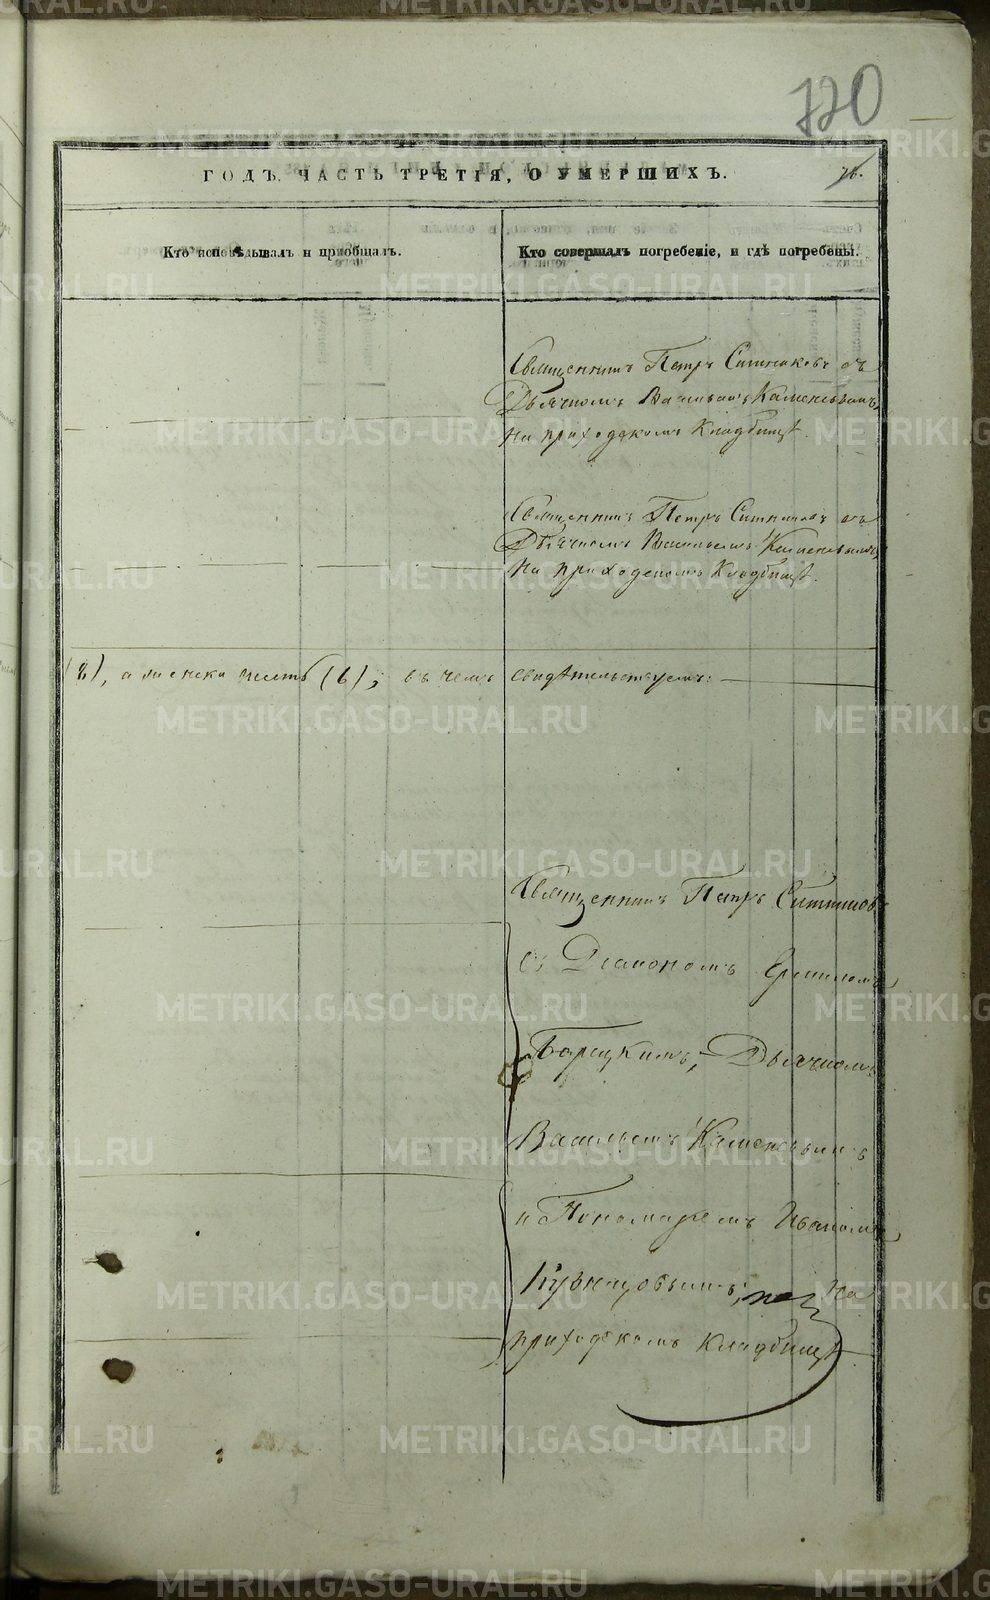 720
ГОДЪ. ЧАСТЬ ТРЕТІЯ, О УМЕРШИХЪ.
76.
Кто исповѣдывалъ и пріобщалъ.
Кто совершалъ погребеніе, и гдѣ погребены.
Священникъ Петръ Ситниковъ съ
Дьячкомъ Васильемъ
на приходскомъ Кладбищѣ.
Священникъ Петръ Ситниковъ съ
Дьячкомъ Васильемъ
на приходскомъ Кладбищѣ.
(8), а женска шесть (6); въ чемъ свидѣтельствуемъ:
Священникъ Петръ Ситниковъ
съ Діакономъ Ермиломъ
Дьячкомъ
Васильемъ
и Пономаремъ Иваномъ
Кузнецовымъ, на
приходскомъ Кладбищѣ
METRIKI.GASO-URAL.RU